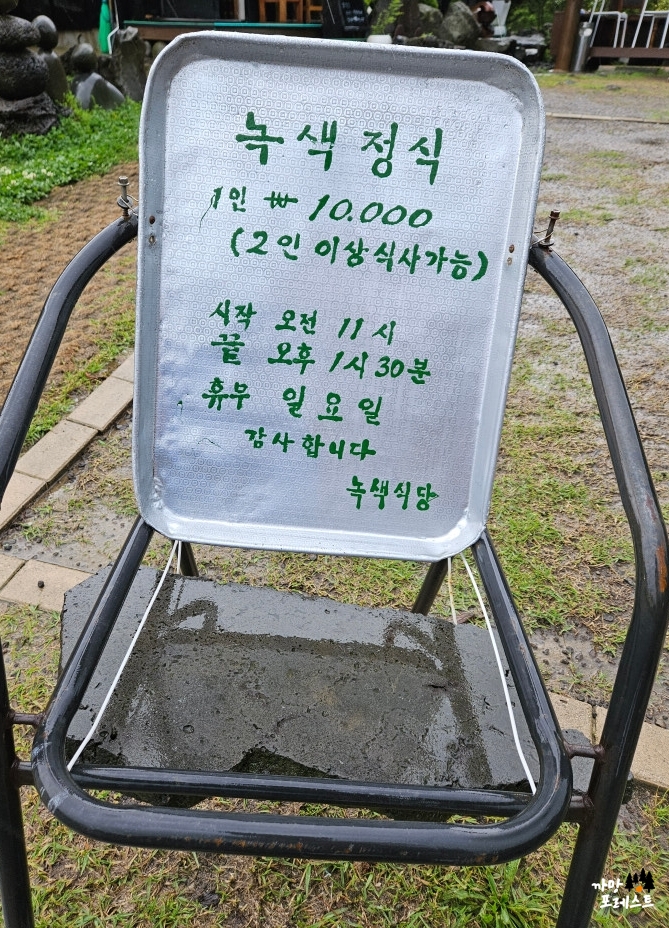 녹색정식
1인 ₩ 10.000
(2인 이상식사가능)
시작 오전 11시
끝 오후 1시30분
휴무 일요일
감사합니다
녹색식당
까망
포레스트